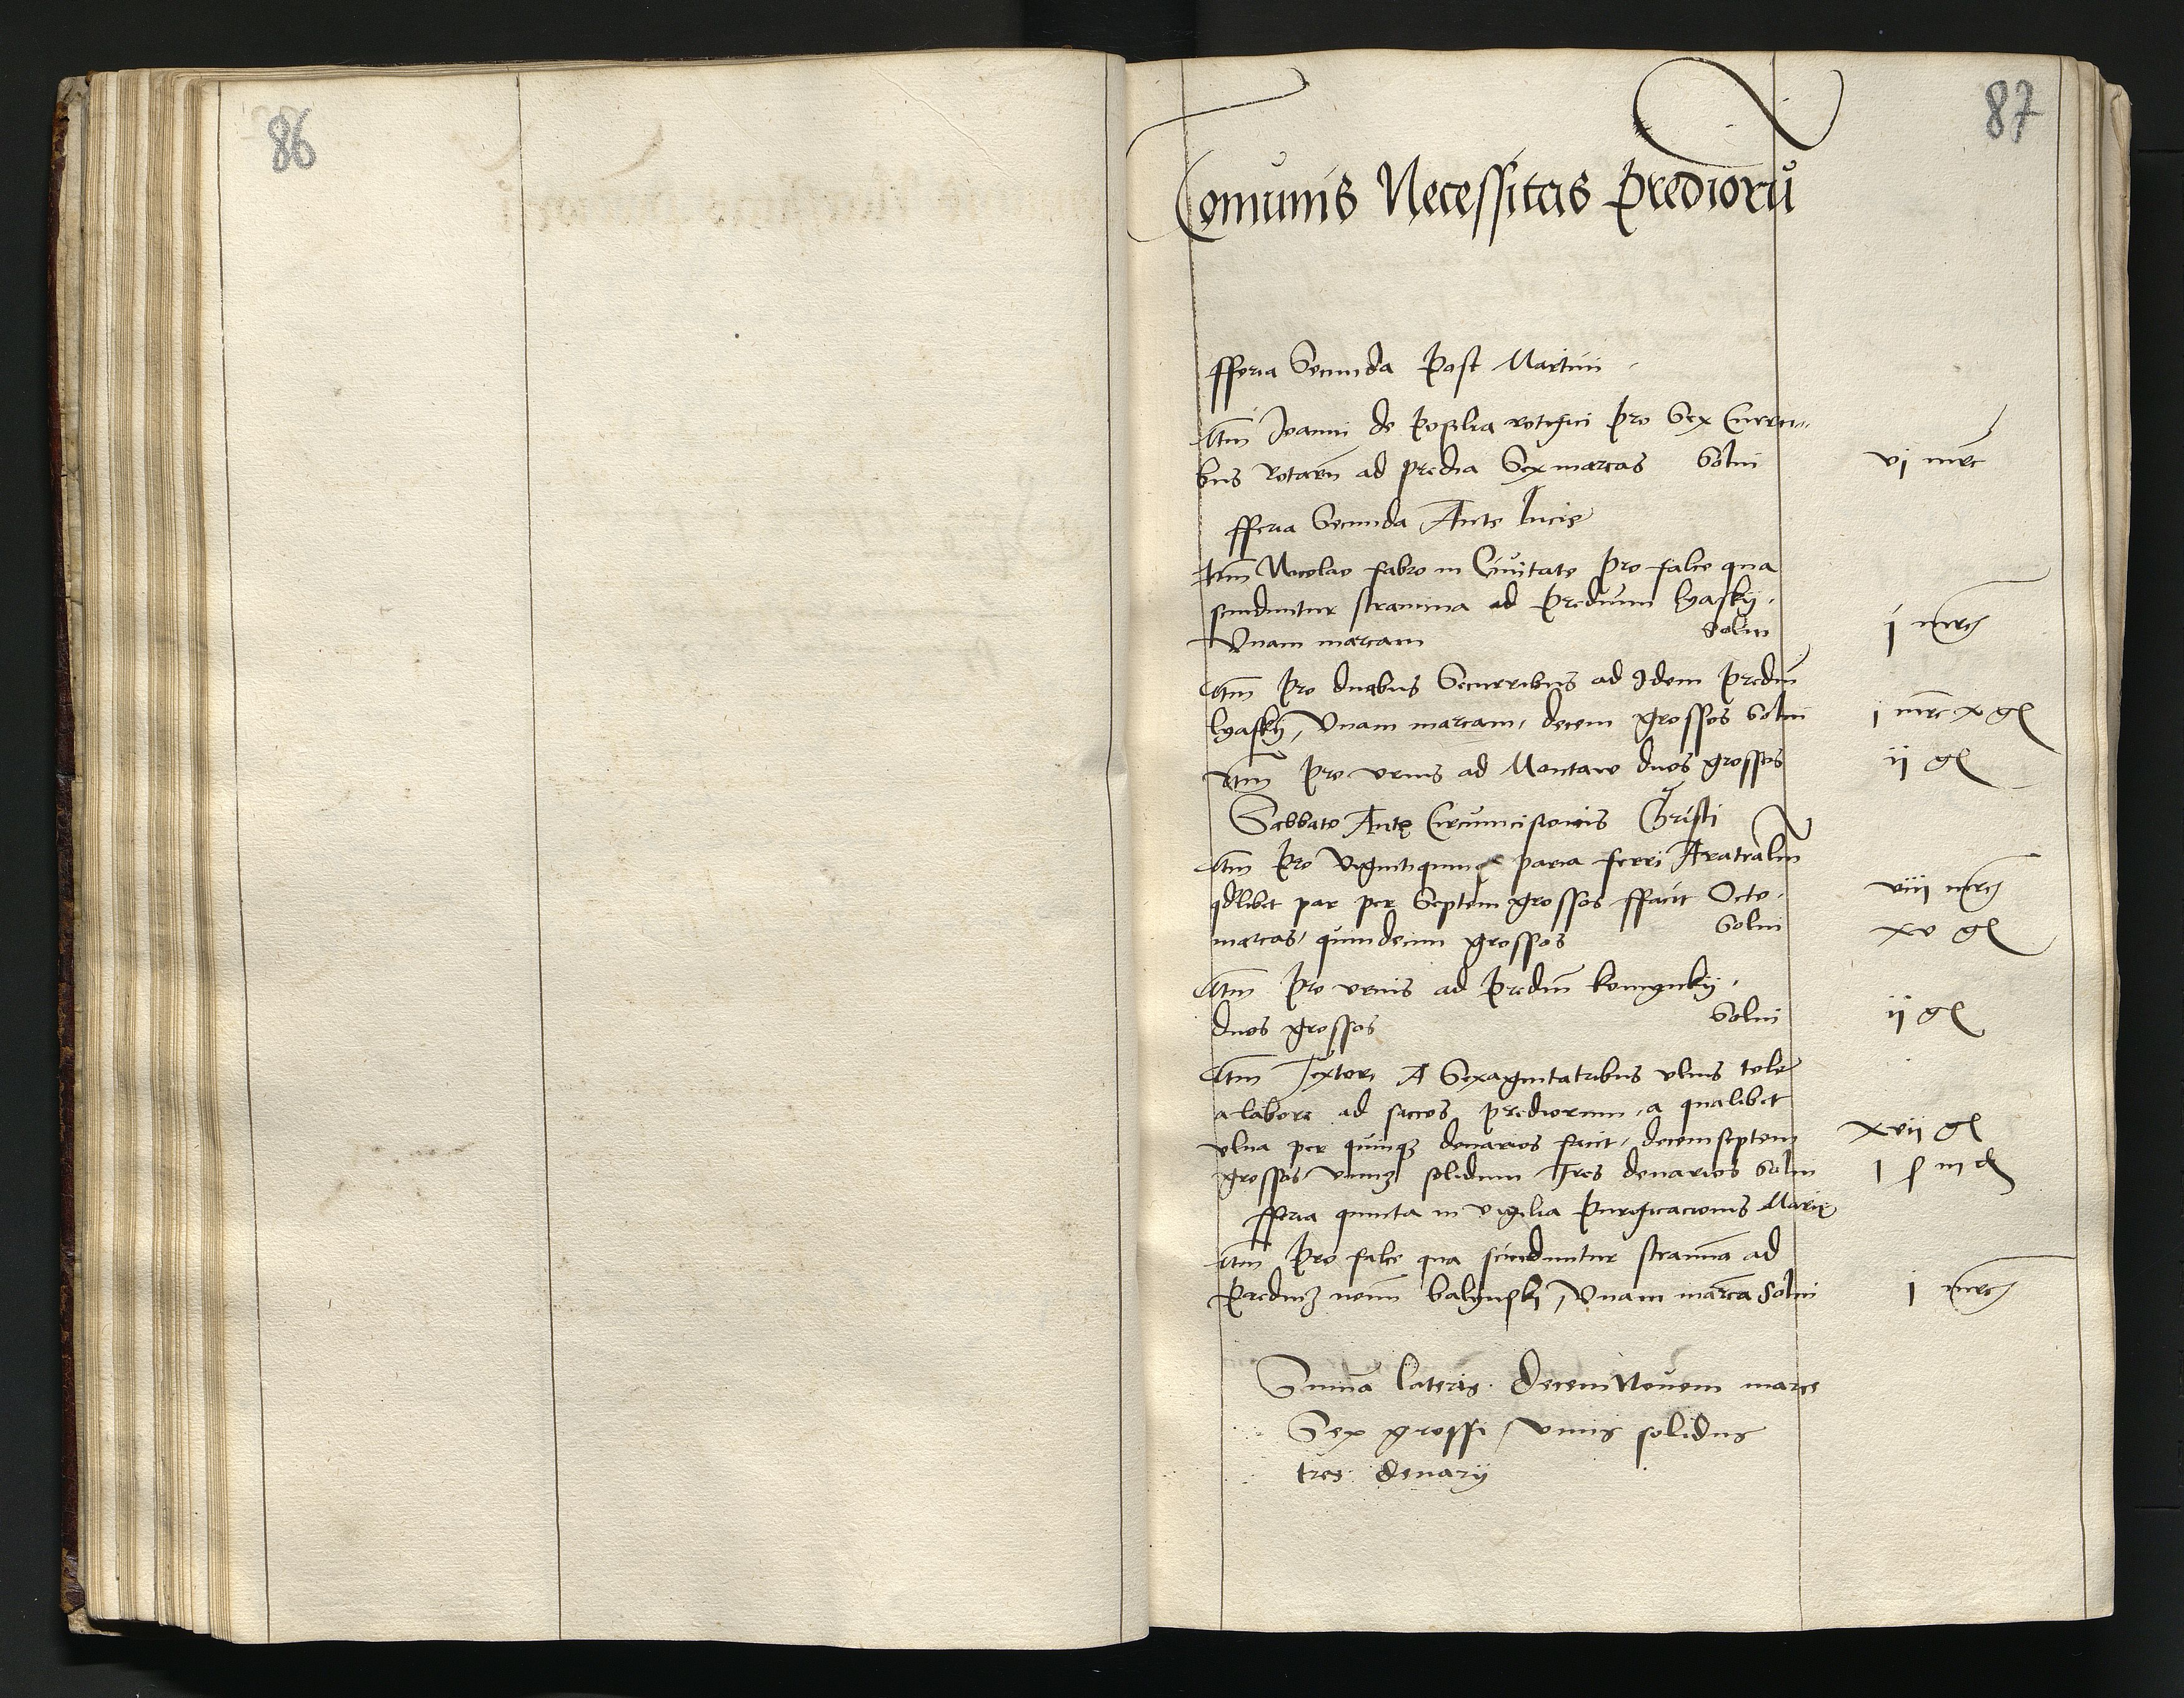 86
87
Comunis Necessitas Prediorũ
fferia Secunda Post Martini
Itm Joanni de Posilia rotifici pro Sex Curru-
bus Rotarũ ad predia Sex marcas Solui vj mrc
fferia Secunda Ante Lucie
Itm Nicolao fabro in Ciuitate pro falce qua
scinduntur stramina ad predium lyasky.
Vnam marcam Solui j mrc
Itm Pro duabus Securribus ad Idem prediũ
lyasky, Vnam marcam, decem grossos Solui j mrc x gl
Itm pro vrnis ad Montaw duos grossos ij gl
Sabbato Ante Circumcisionis Christi
Itm Pro Vigintiquinq paria ferri Aratraliũ
qdlibet par per Septem grossos ffacit Octo. viij mrc
marcas, quindecim grossos Solui xv gl
Itm pro vrnis ad prediũ komynky.
duos grossos Solui ij gl
Itm Textori A Sexagintatribus vlnis tele
a labore ad saccos prediorum, a qualibet
vlna per quinqz denarios facit, decemseptem xvij gl
grossos vnumz solidum Tres denarios Solui j s iij d
fferia quinta in vigilia Purificacionis Marie
Itm Pro falce qua scinduntur stramina ad
Prediuz nouũ balynsky, Vnam marcã Solui j mrc
Summa Lateris. DecemNouem marce
Sex grossi, vnus solidus
tres denarij